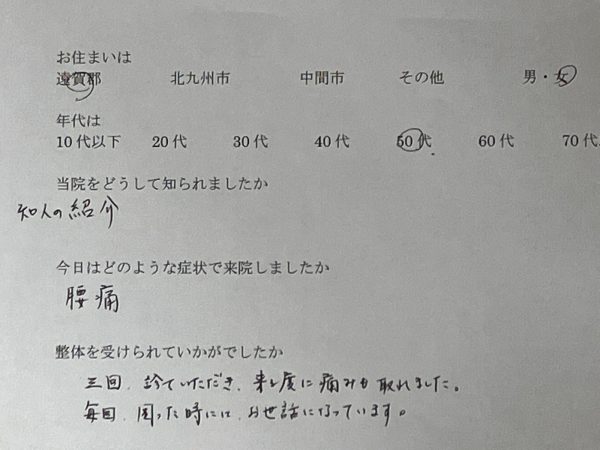 お住まいは
遠賀郡 北九州市 中間市 その他 男・女
年代は
10代以下 20代 30代 40代 50代 60代 70代
当院をどうして知られましたか
知人の紹介
今日はどのような症状で来院しましたか
腰痛
整体を受けられていかがでしたか
三回、診ていただき、来る度に痛みも取れました。
毎回、困った時には、お世話になっています。